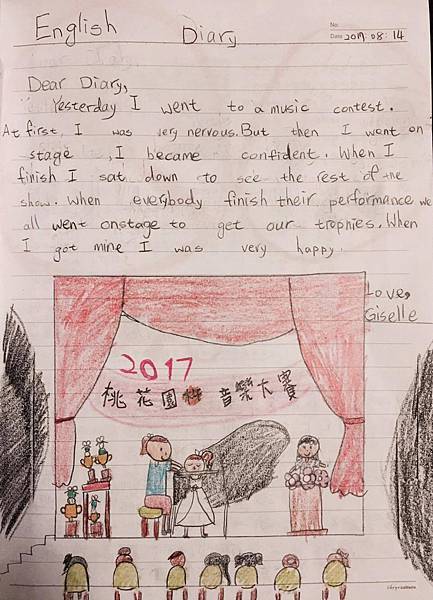 English Diary
No:
Date 2017. 08. 14
Dear Diary,
Yesterday I went to a music contest.
At first, I was very nervous. But then I went on
stage, I became confident. When I
finish I sat down to see the rest of the
show. When everybody finish their performance we
all went onstage to get our trophies. When
I got mine I was very happy.
Love,
Giselle
2017
桃花園 音樂大賽